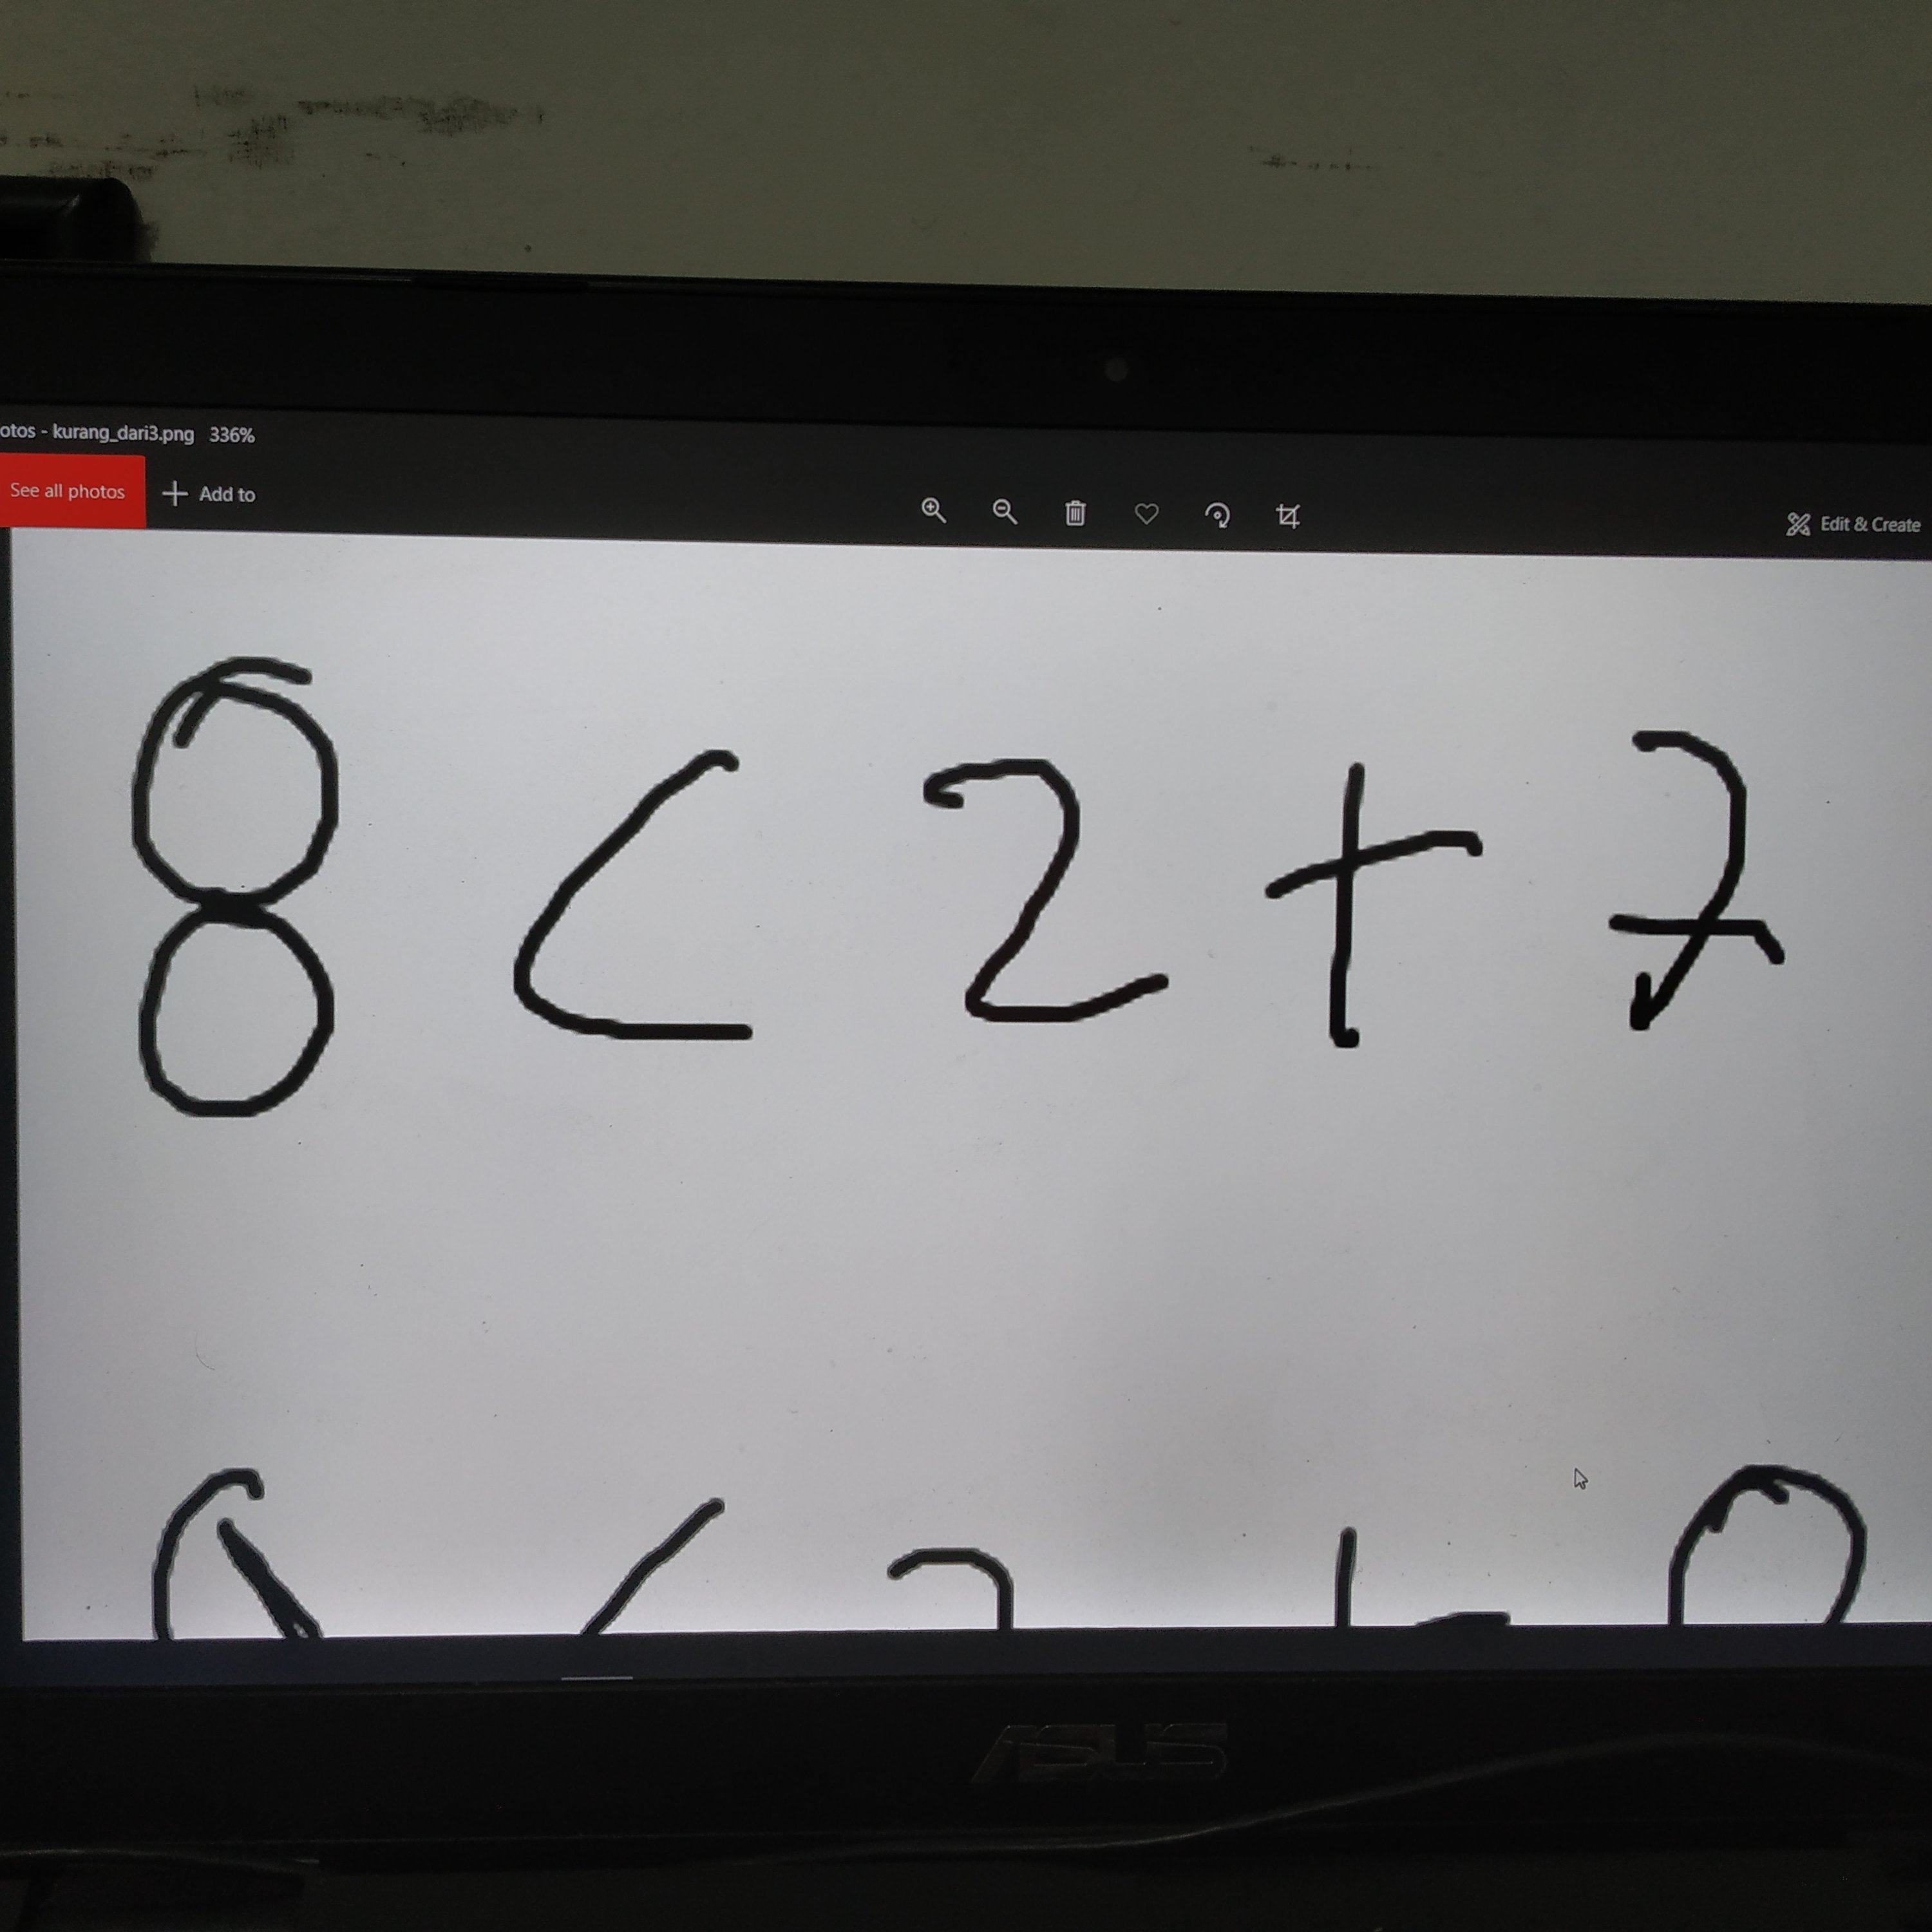 otos - kurang_dari3.png 336%
See all photos
Add to
Edit & Create
8 < 2 + 7
ASUS